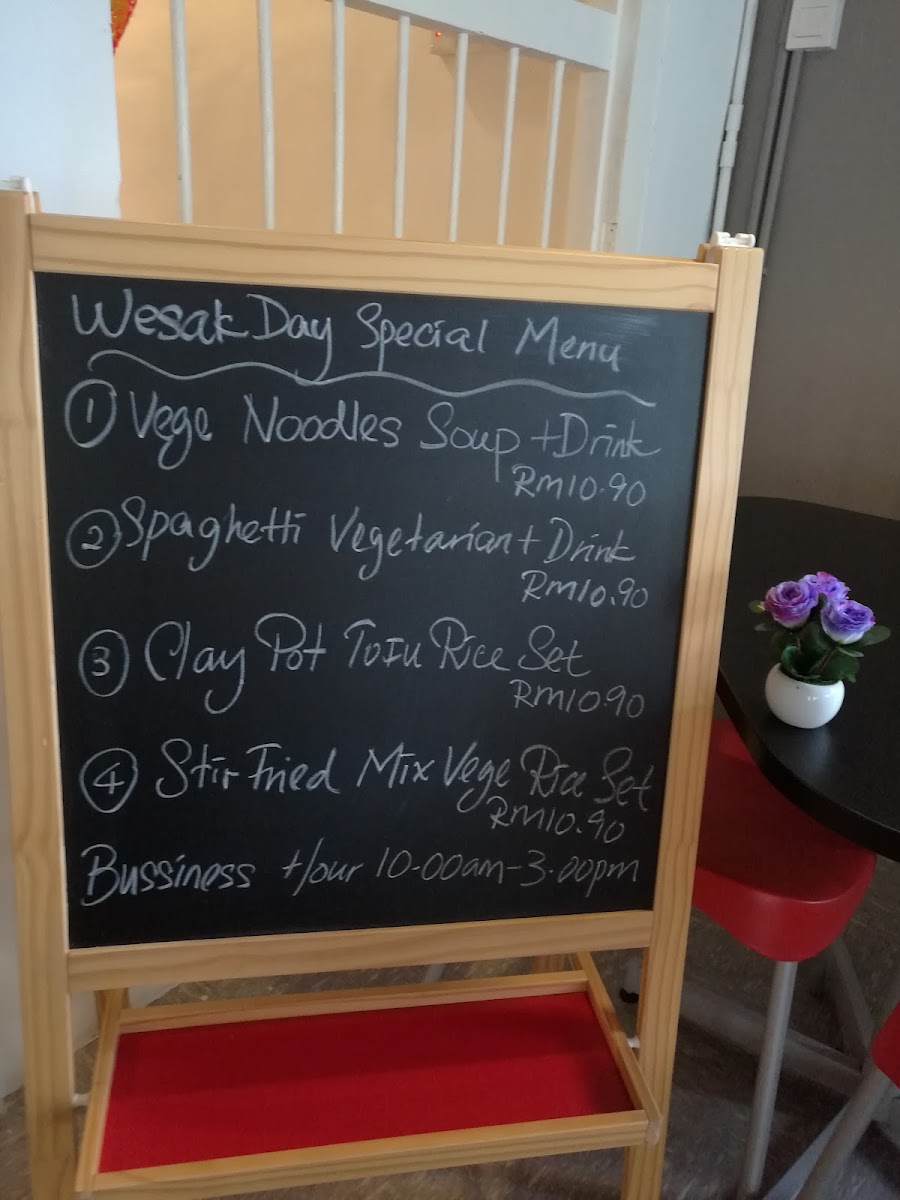 Wesak Day Special Menu
① Vege Noodles Soup + Drink
RM10.90
② Spaghetti Vegetarian + Drink
RM10.90
③ Clay Pot Tofu Rice Set
RM10.90
④ Stir Fried Mix Vege Rice Set
RM10.90
Bussiness Hour 10.00am-3.00pm